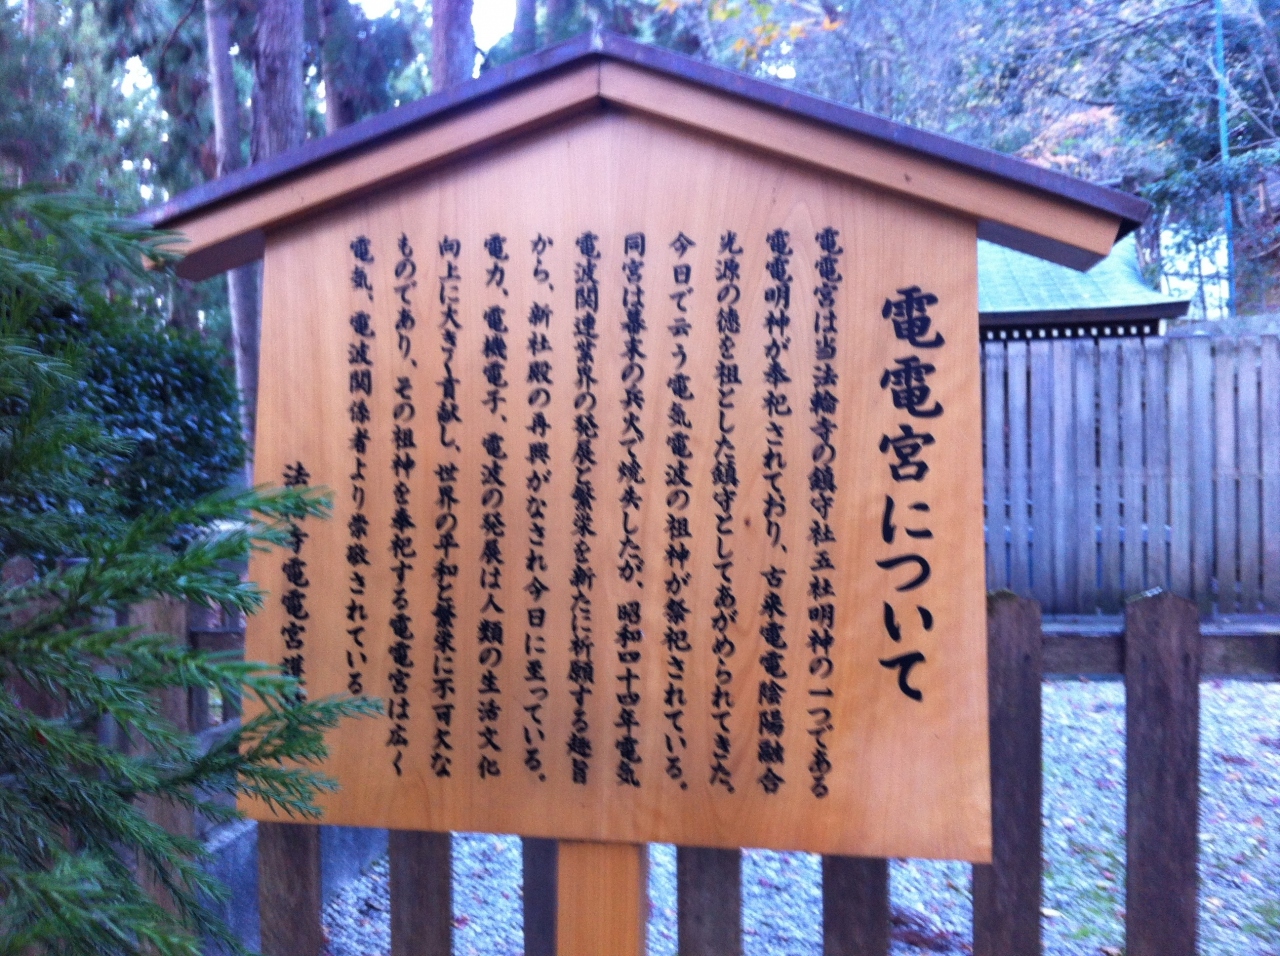 電電宮について
電電宮は当法輪寺の鎮守社五社明神の一つである
電電明神が奉祀されており、古来電電陰陽融合
光源の徳を祖とした鎮守としてあがめられてきた。
今日で云う電気電波の祖神が祭祀されている。
同宮は幕末の兵火で焼失したが、昭和四十四年電気
電波関連業界の発展と繁栄を新たに祈願する趣旨
から、新社殿の再興がなされ今日に至っている。
電力、電機電子、電波の発展は人類の生活文化
向上に大きく貢献し、世界の平和と繁栄に不可欠な
ものであり、その祖神を奉祀する電電宮は広く
電気、電波関係者より崇敬されている
法 寺電電宮護